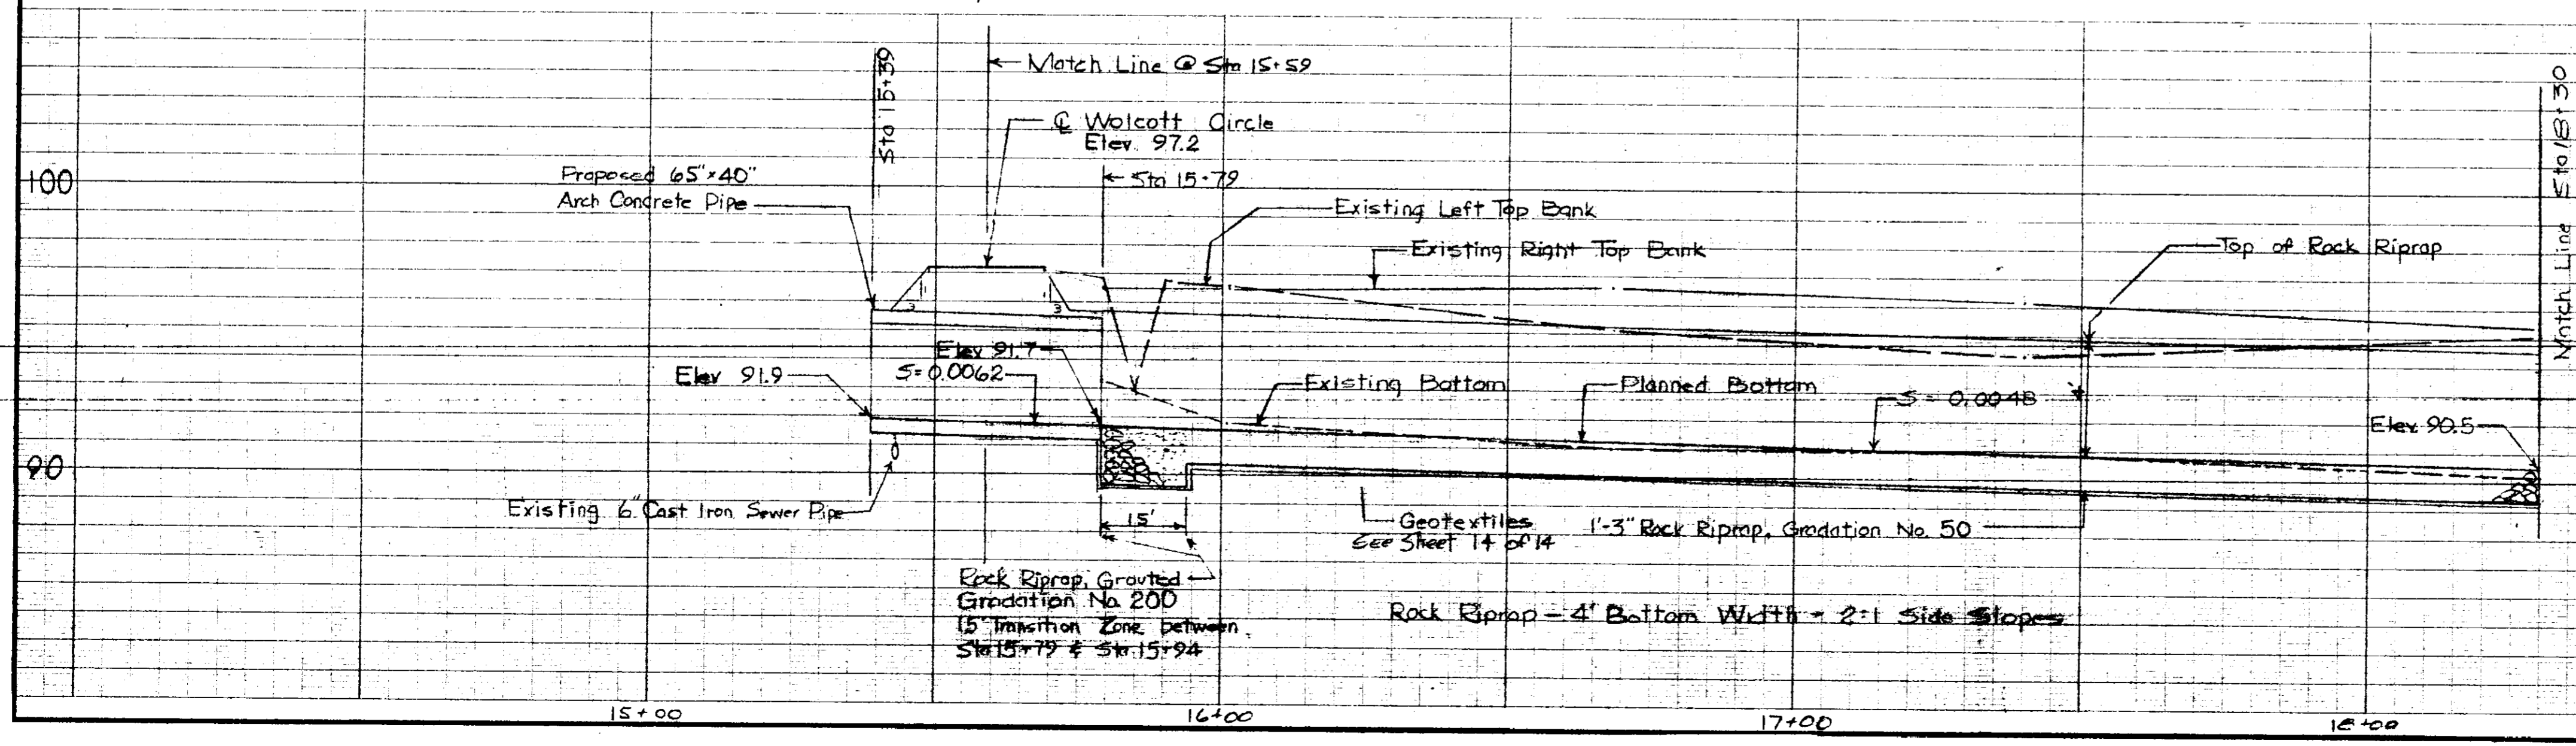 Sta 15+39
Match Line @ Sta 15+59
℄ Wolcott Circle
Elev. 97.2
Sta 15+79
Proposed 65"×40"
Arch Concrete Pipe
100
Existing Left Top Bank
Existing Right Top Bank
Top of Rock Riprap
Match Line Sta 18+30
Elev 91.7
S=0.0062
Elev 91.9
Existing Bottom
Planned Bottom
S = 0.0048
Elev. 90.5
1
3
1
3
90
Existing 6" Cast Iron Sewer Pipe
15'
Geotextiles
See Sheet 14 of 14
1'-3" Rock Riprap, Gradation No. 50
Rock Riprap, Grouted
Gradation No. 200
15' Transition Zone between
Sta 15+79 & Sta 15+94
Rock Riprap - 4' Bottom Width - 2:1 Side Slopes
15+00
16+00
17+00
18+00